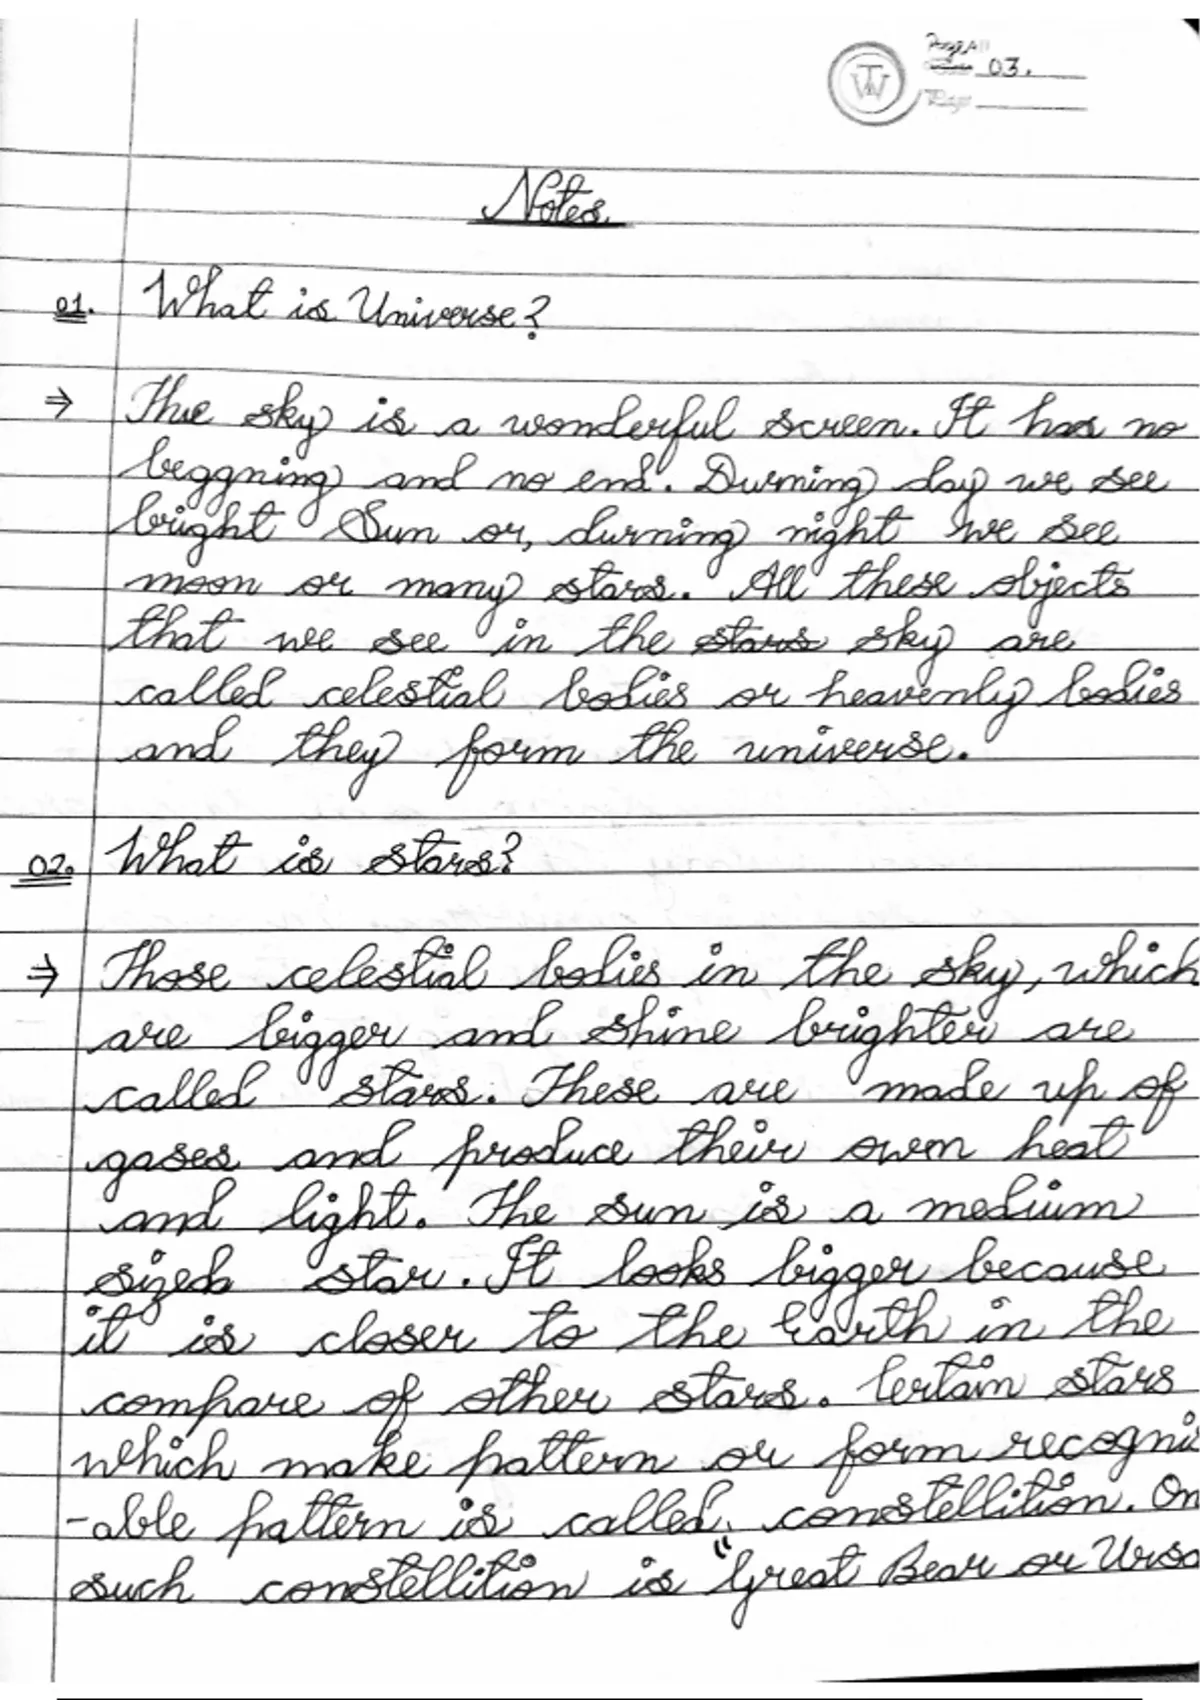 Page
03.
Page
Notes
01. What is Universe?
⇒ The sky is a wonderful screen. It has no
beggning and no end. Durning day we see
bright Sun or, durning night we see
moon or many stars. All these objects
that we see in the stars sky are
called celestial bodies or heavenly bodies
and they form the universe.
02. What is stars?
⇒ Those celestial bodies in the sky, which
are bigger and shine brighter are
called stars. These are made up of
gases and produce their own heat
and light. The sun is a medium
sized star. It looks bigger because
it is closer to the Earth in the
compare of other stars. Certain stars
which make pattern or form recogni
-able pattern is called constellition. On
such constellition is "Great Bear or Ursa